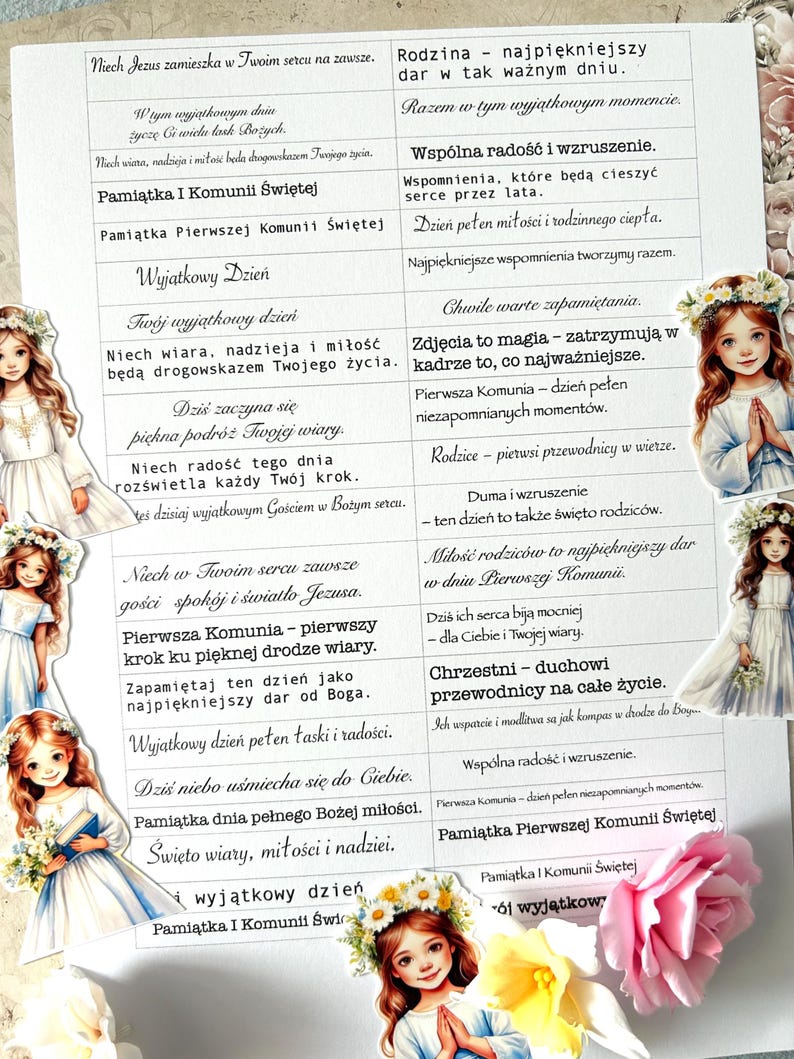 Niech Jezus zamieszka w Twoim sercu na zawsze.
W tym wyjątkowym dniu
życzę Ci wielu łask Bożych.
Niech wiara, nadzieja i miłość będą drogowskazem Twojego życia.
Pamiątka I Komunii Świętej
Pamiątka Pierwszej Komunii Świętej
Wyjątkowy Dzień
Twój wyjątkowy dzień
Niech wiara, nadzieja i miłość
będą drogowskazem Twojego życia.
Dziś zaczyna się
piękna podróż Twojej wiary.
Niech radość tego dnia
rozświetla każdy Twój krok.
dzisiaj wyjątkowym Gościem w Bożym sercu.
Niech w Twoim sercu zawsze
gości spokój i światło Jezusa.
Pierwsza Komunia – pierwszy
krok ku pięknej drodze wiary.
Zapamiętaj ten dzień jako
najpiękniejszy dar od Boga.
Wyjątkowy dzień pełen łaski i radości.
Dziś niebo uśmiecha się do Ciebie.
Pamiątka dnia pełnego Bożej miłości.
Święto wiary, miłości i nadziei.
wyjątkowy dzień
Pamiątka I Komunii
Rodzina – najpiękniejszy
dar w tak ważnym dniu.
Razem w tym wyjątkowym momencie.
Wspólna radość i wzruszenie.
Wspomnienia, które będą cieszyć
serce przez lata.
Dzień pełen miłości i rodzinnego ciepła.
Najpiękniejsze wspomnienia tworzymy razem.
Chwile warte zapamiętania.
Zdjęcia to magia – zatrzymują w
kadrze to, co najważniejsze.
Pierwsza Komunia – dzień pełen
niezapomnianych momentów.
Rodzice – pierwsi przewodnicy w wierze.
Duma i wzruszenie
– ten dzień to także święto rodziców.
Miłość rodziców to najpiękniejszy dar
w dniu Pierwszej Komunii.
Dziś ich serca biją mocniej
– dla Ciebie i Twojej wiary.
Chrzestni – duchowi
przewodnicy na całe życie.
Ich wsparcie i modlitwa są jak kompas w drodze do
Wspólna radość i wzruszenie.
Pierwsza Komunia – dzień pełen niezapomnianych momentów.
Pamiątka Pierwszej Komunii Świętej
Pamiątka I Komunii Świętej